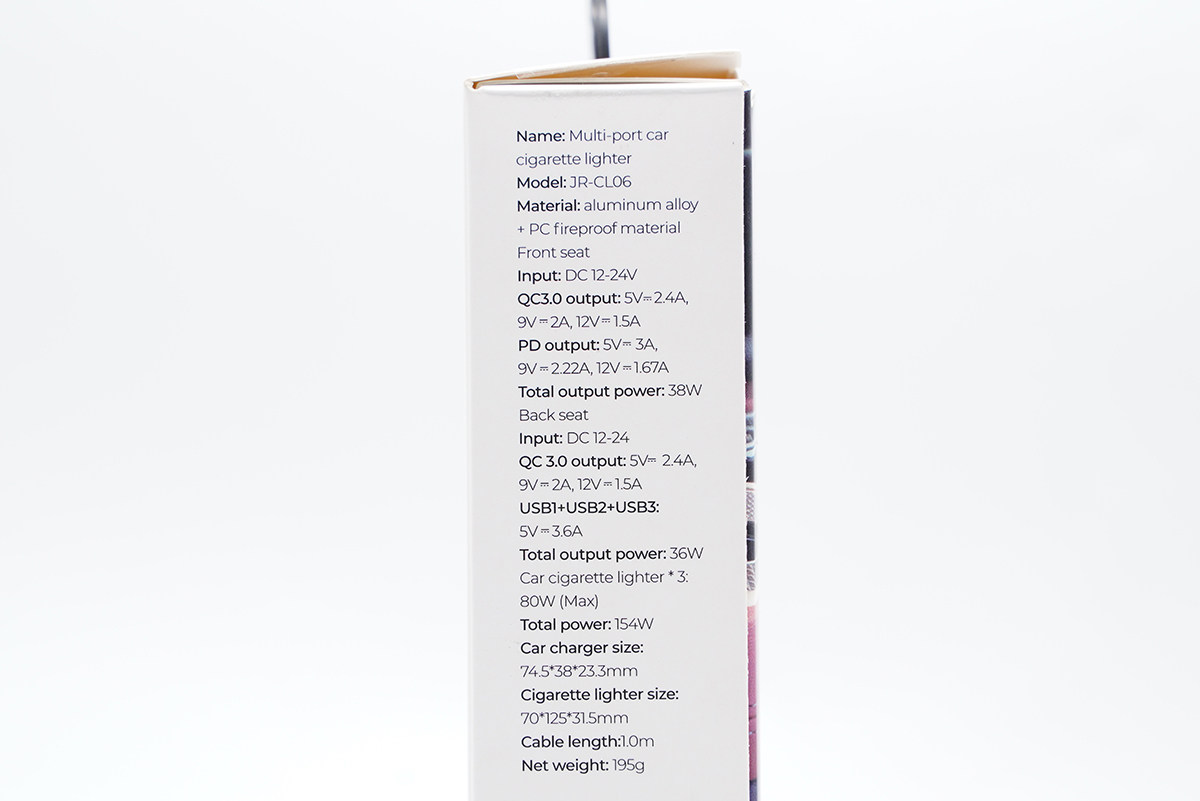 Name: Multi-port car
cigarette lighter
Model: JR-CL06
Material: aluminum alloy
+ PC fireproof material
Front seat
Input: DC 12-24V
QC3.0 output: 5V⎓2.4A,
9V⎓2A, 12V⎓1.5A
PD output: 5V⎓ 3A,
9V⎓2.22A, 12V⎓1.67A
Total output power: 38W
Back seat
Input: DC 12-24
QC 3.0 output: 5V⎓ 2.4A,
9V⎓2A, 12V⎓1.5A
USB1+USB2+USB3:
5V⎓3.6A
Total output power: 36W
Car cigarette lighter * 3:
80W (Max)
Total power: 154W
Car charger size:
74.5*38*23.3mm
Cigarette lighter size:
70*125*31.5mm
Cable length:1.0m
Net weight: 195g